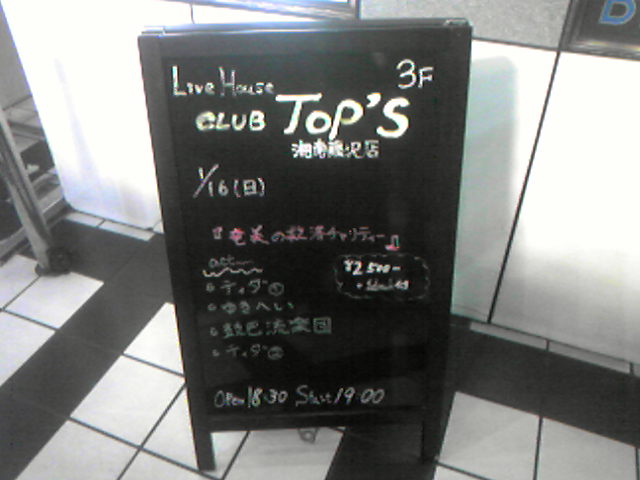 Live House 3F
CLUB TOP'S
湘南藤沢店
1/16(日)
『奄美の救済チャリティー』
act
¥2,500-
ティダ①
ゆきへい
ティダ②
Open 18:30 Start 19:00